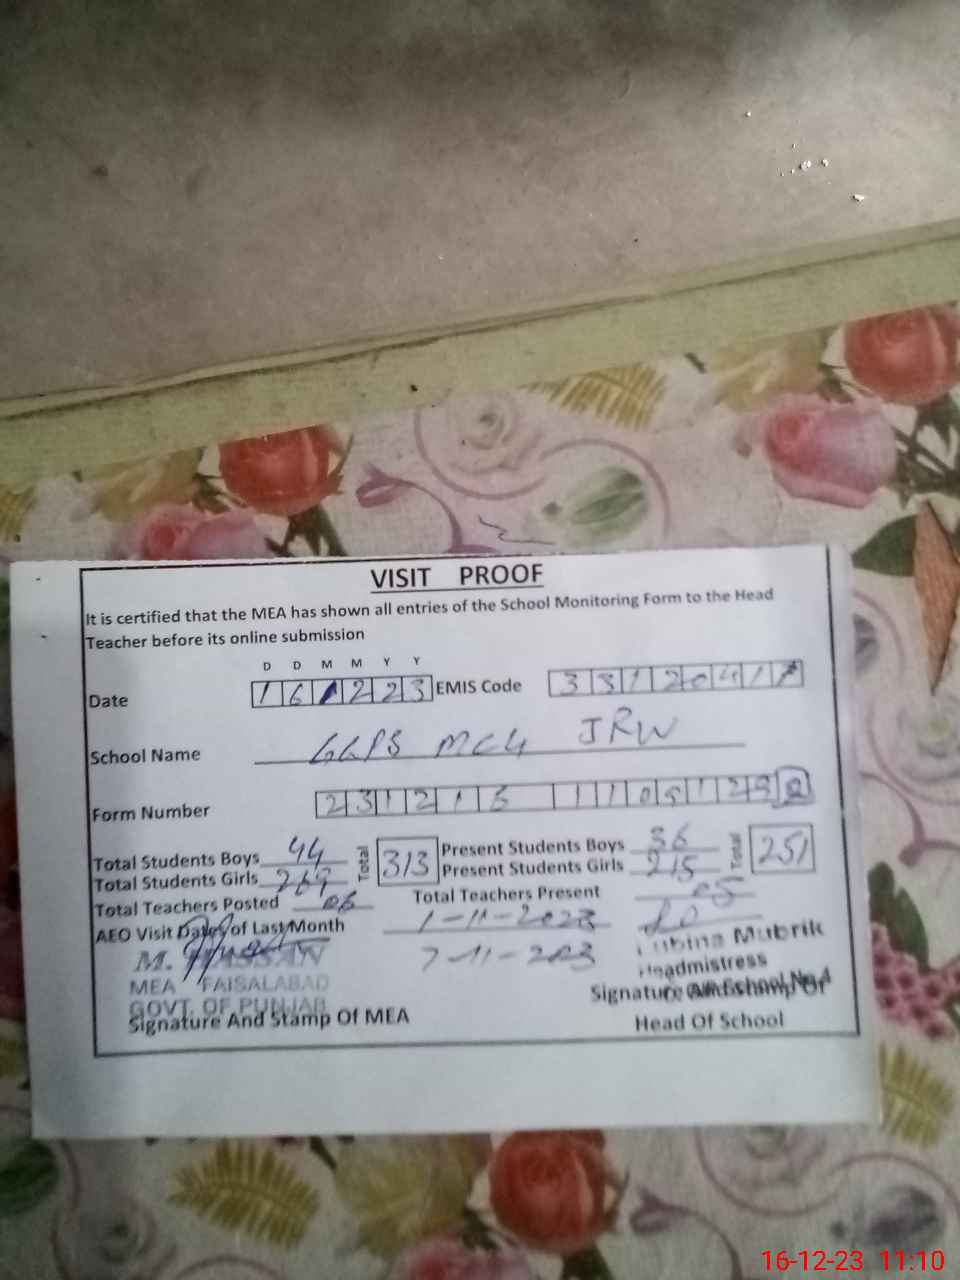 VISIT PROOF
It is certified that the MEA has shown all entries of the School Monitoring Form to the Head
Teacher before its online submission
D D M M Y Y
Date 161223 EMIS Code 3312041
School Name GGPS MC4 JRW
Form Number
Total Students Boys 44 Total 313 Present Students Boys 36 Total 251
Total Students Girls 269 Present Students Girls 215
Total Teachers Posted 06 Total Teachers Present 05
AEO Visit Dates of Last Month 1-11-2023
7-11-2023
M. HASSAN
MEA FAISALABAD
GOVT. OF PUNJAB
Signature And Stamp Of MEA
Mubrik
Headmistress
School No.4
Signature And Stamp Of
Head Of School
16-12-23 11:10